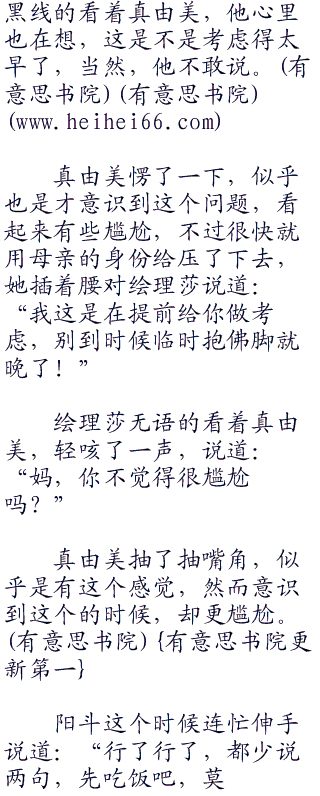 黑线的看着真由美，他心里
也在想，这是不是考虑得太
早了，当然，他不敢说。(有
意思书院)(有意思书院)
(www.heihei66.com)
真由美愣了一下，似乎
也是才意识到这个问题，看
起来有些尴尬，不过很快就
用母亲的身份给压了下去，
她插着腰对绘理莎说道：
“我这是在提前给你做考
虑，别到时候临时抱佛脚就
晚了！”
绘理莎无语的看着真由
美，轻咳了一声，说道：
“妈，你不觉得很尴尬
吗？”
真由美抽了抽嘴角，似
乎是有这个感觉，然而意识
到这个的时候，却更尴尬。
(有意思书院){有意思书院更
新第一}
阳斗这个时候连忙伸手
说道：“行了行了，都少说
两句，先吃饭吧，莫